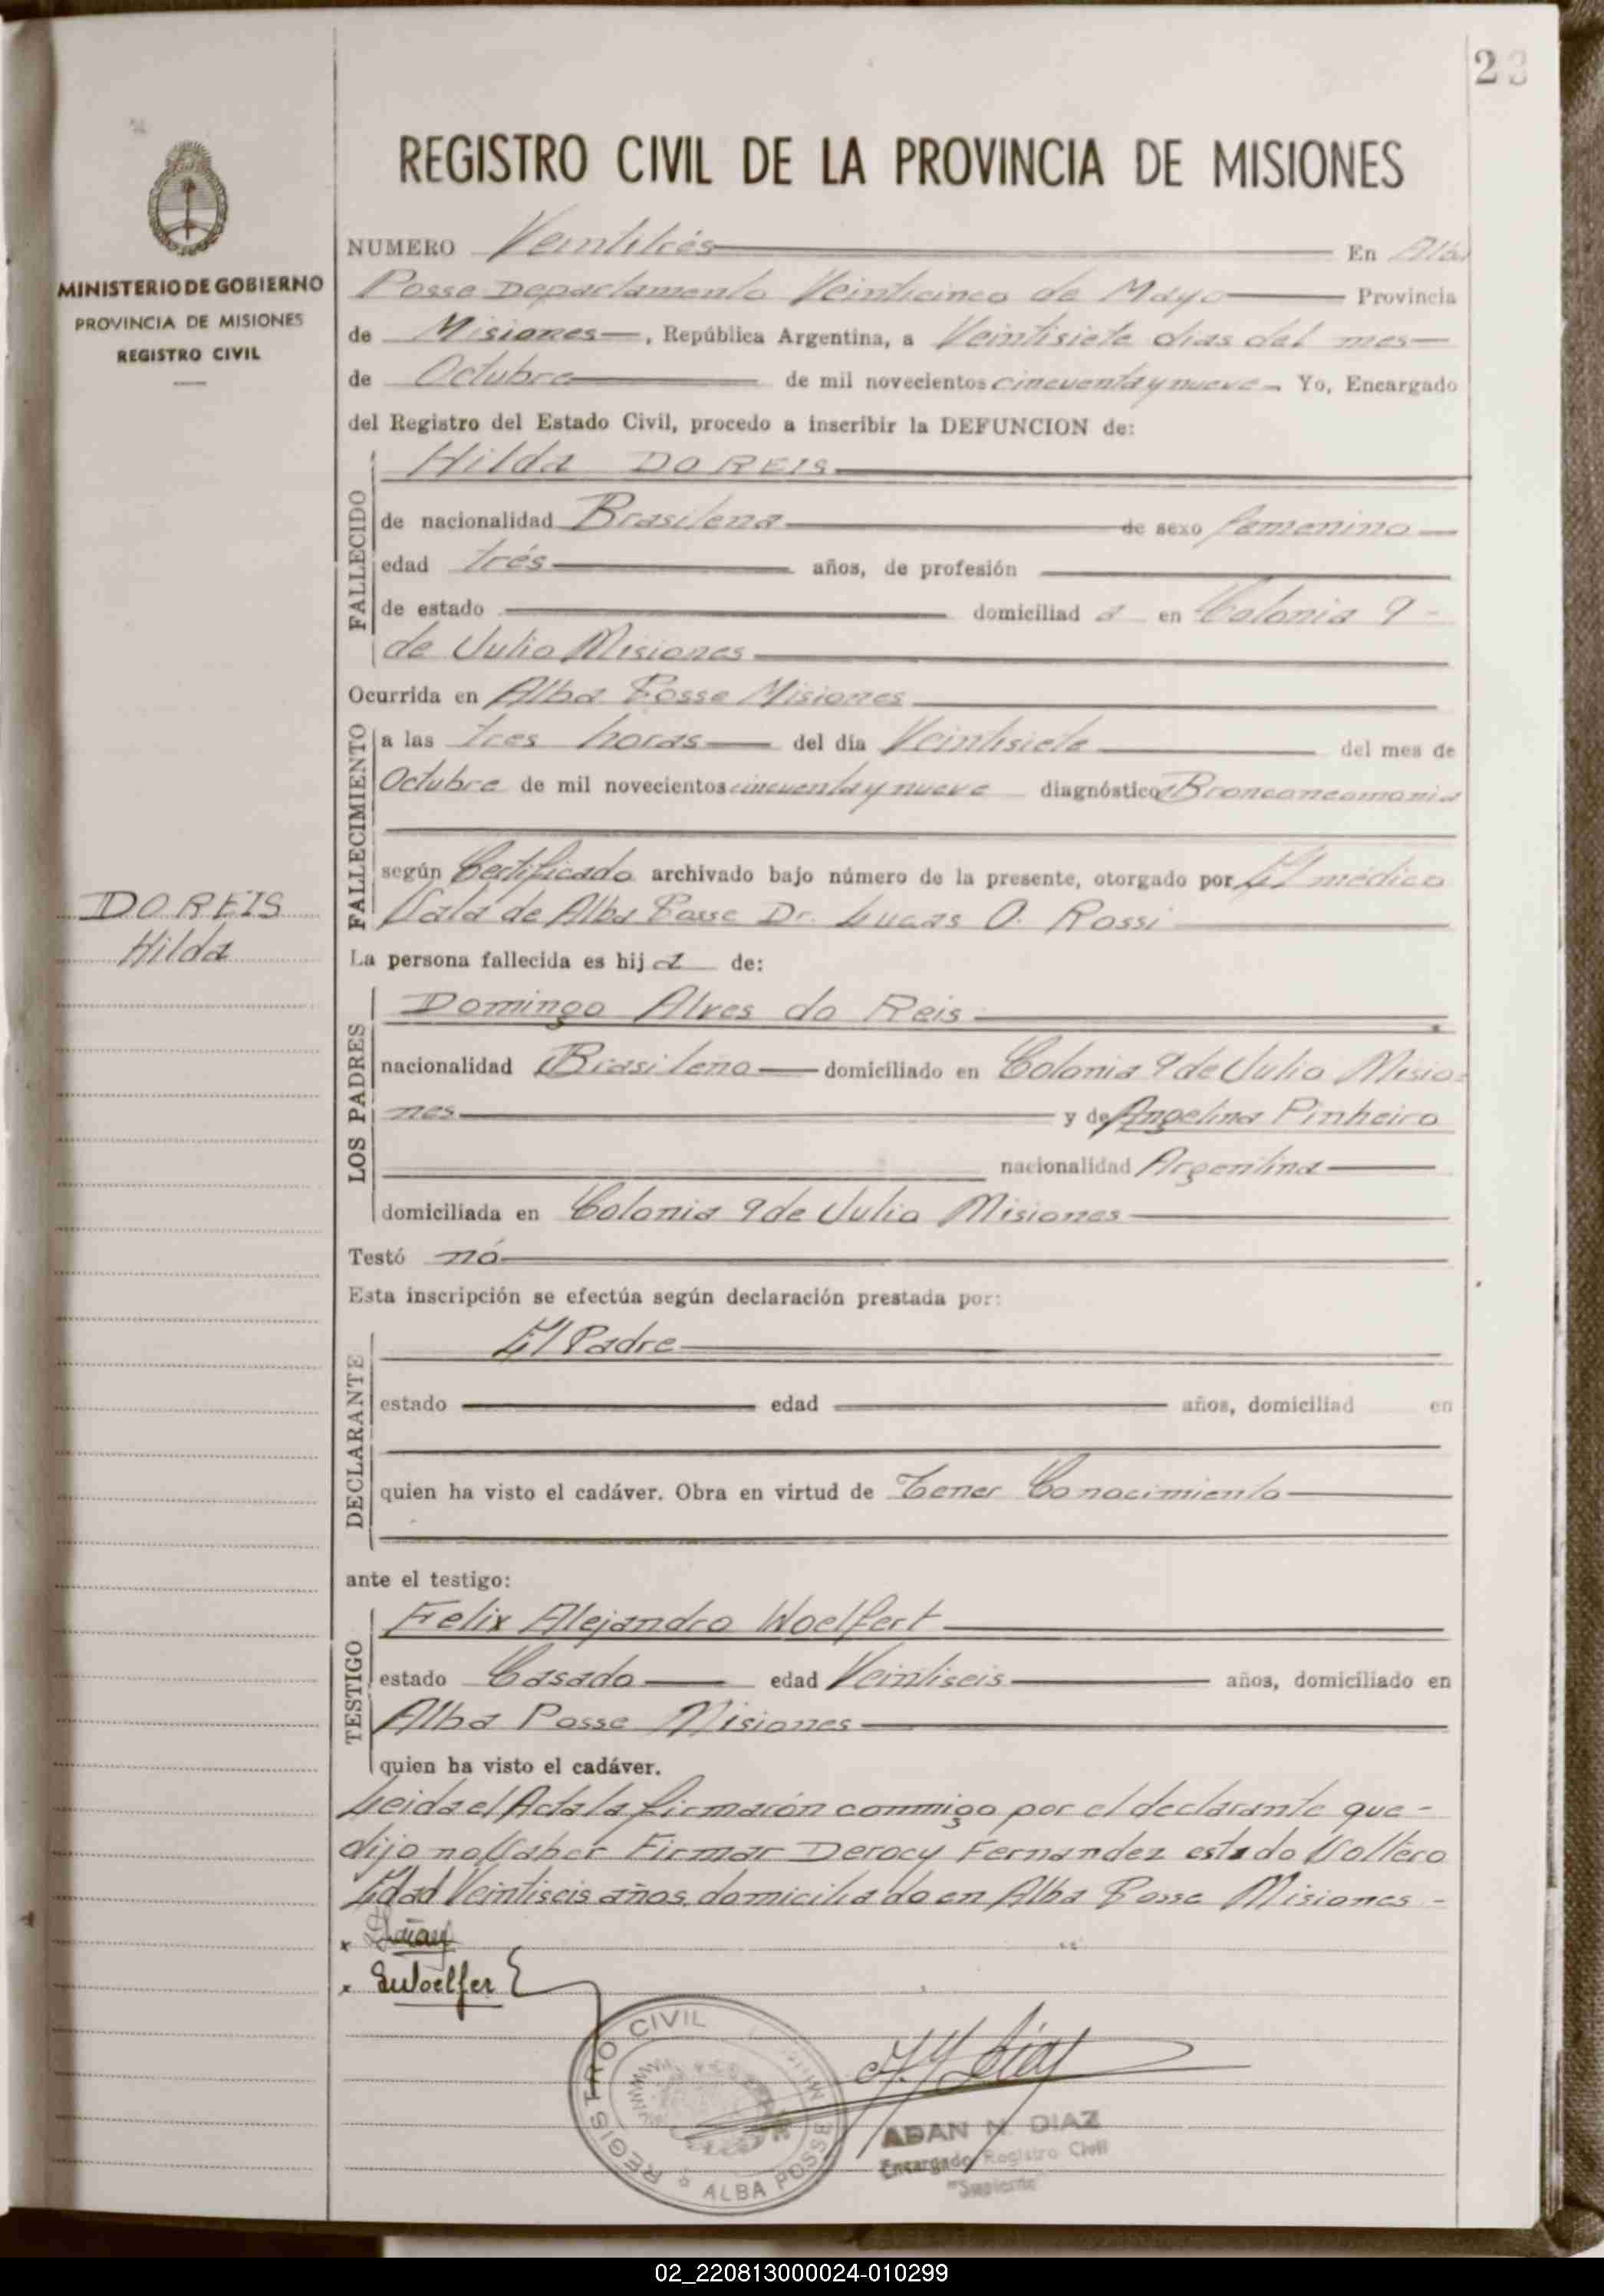 23
REGISTRO CIVIL DE LA PROVINCIA DE MISIONES
MINISTERIO DE GOBIERNO
PROVINCIA DE MISIONES
REGISTRO CIVIL
NUMERO Veintitrés En Alba
Posse Departamento Veinticinco de Mayo Provincia
de Misiones, República Argentina, a Veintisiete dias del mes
de Octubre de mil novecientos cincuenta y nueve Yo, Encargado
del Registro del Estado Civil, procedo a inscribir la DEFUNCION de:
FALLECIDO
Hilda DO REIS
de nacionalidad Brasilena de sexo femenino
edad trés años, de profesión
de estado domiciliad a en Colonia 9 -
de Julio Misiones
Ocurrida en Alba Posse Misiones
FALLECIMIENTO
a las tres horas del día Veintisiete del mes de
Octubre de mil novecientos cincuenta y nueve diagnóstico Bronconeomonia
según Certificado archivado bajo número de la presente, otorgado por El médico
Sala de Alba Posse Dr. Lucas O. Rossi
DO REIS
Hilda
La persona fallecida es hij a de:
LOS PADRES
Domingo Alves do Reis
nacionalidad Brasileño domiciliado en Colonia 9 de Julio Misio-
nes y de Angelina Pinheiro
nacionalidad Argentina
domiciliada en Colonia 9 de Julio Misiones
Testó nó
Esta inscripción se efectúa según declaración prestada por:
DECLARANTE
El Padre
estado edad años, domiciliad en
quien ha visto el cadáver. Obra en virtud de Tener Conocimiento
ante el testigo:
TESTIGO
Felix Alejandro Woelfert
estado Casado edad Veintiseis años, domiciliado en
Alba Posse Misiones
quien ha visto el cadáver.
Leida el Acta la firmarón conmigo por el declarante que -
dijo no Saber Firmar Derocy Fernandez estado Soltero
Edad Veintiseis años, domiciliado en Alba Posse Misiones -
x
x Woelfer
REGISTRO CIVIL
ALBA POSSE
ADAN N. DIAZ
Encargado Registro Civil
"Suplente"
02_220813000024-010299